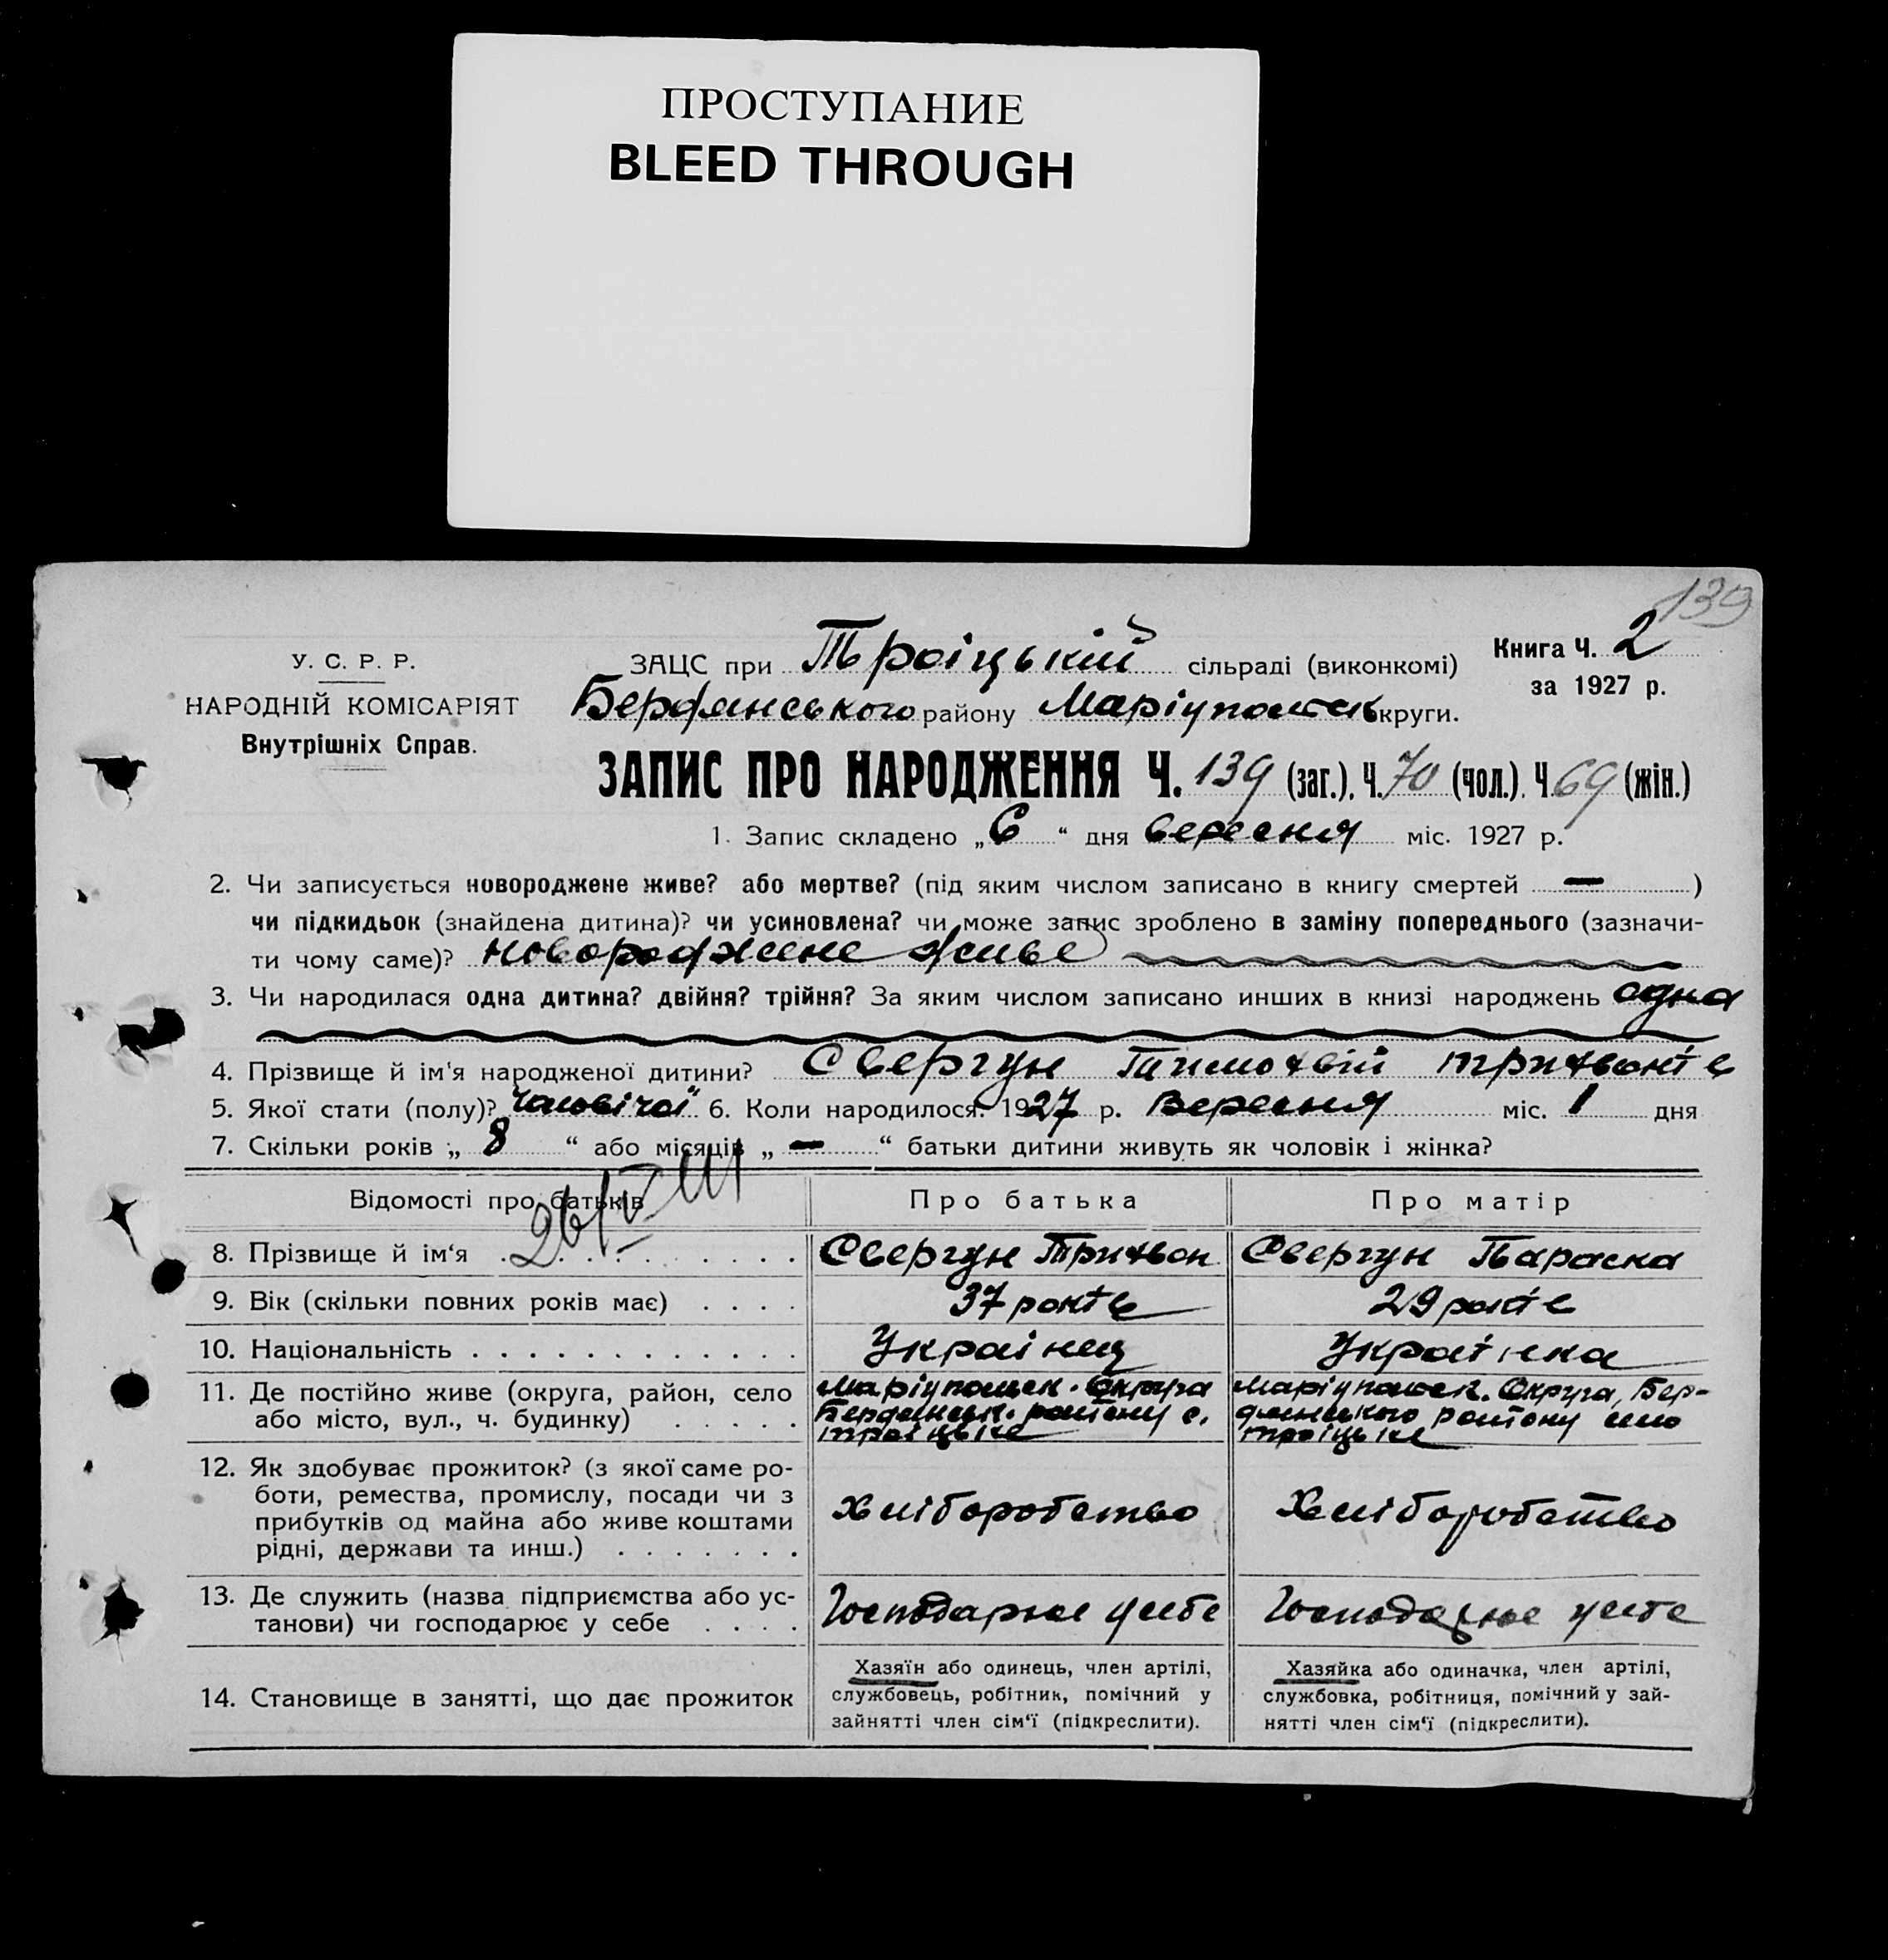 ПРОСТУПАНИЕ
BLEED THROUGH
139
У. С. Р. Р.
НАРОДНІЙ КОМІСАРІЯТ
Внутрішніх Справ.
ЗАЦС при Троіцькій сільраді (виконкомі)
Книга Ч. 2
за 1927 р.
Бердянського району Маріупольськ округи.
ЗАПИС ПРО НАРОДЖЕННЯ Ч. 139 (заг.), Ч. 70 (чол.), Ч. 69 (жін.)
1. Запис складено „6“ дня Вересня міс. 1927 р.
2. Чи записується новороджене живе? або мертве? (під яким числом записано в книгу смертей — )
чи підкидьок (знайдена дитина)? чи усиновлена? чи може запис зроблено в заміну попереднього (зазначи-
ти чому саме)? новороджене живе
3. Чи народилася одна дитина? двійня? трійня? За яким числом записано инших в книзі народжень одна
4. Прізвище й ім'я народженої дитини? Свергун Тимофвій Трифвонів
5. Якої стати (полу)? Чоловічої 6. Коли народилося. 1927 р. Вересня міс. 1 дня
7. Скільки років „ 8 “ або місяців „ — “ батьки дитини живуть як чоловік і жінка?
Відомості про батьків
Про батька
Про матір
8. Прізвище й ім‘я . . . . . . . . . . .
Свергун Трифвон
Свергун Параска
9. Вік (скільки повних років має) . . . .
37 років
29 років
10. Національність . . . . . . . . . . . .
Украінец
Украінка
11. Де постійно живе (округа, район, село
або місто, вул., ч. будинку) . . . . .
Маріупольск. Округа
Бердянськ. району с.
Троіцьке
Маріупольск. Округа, Бер-
дянського району село
Троіцьке
12. Як здобуває прожиток? (з якої саме ро-
боти, ремества, промислу, посади чи з
прибутків од майна або живе коштами
рідні, держави та инш.) . . . . . . .
Хліборобство
Хліборобство
13. Де служить (назва підприємства або ус-
танови) чи господарює у себе . . . .
Господарює у себе
Господарює у себе
14. Становище в занятті, що дає прожиток
Хазяїн або одинець, член артілі,
службовець, робітник, помічний у
зайнятті член сім‘ї (підкреслити).
Хазяйка або одиначка, член артілі,
службовка, робітниця, помічний у зай-
нятті член сім‘ї (підкреслити).